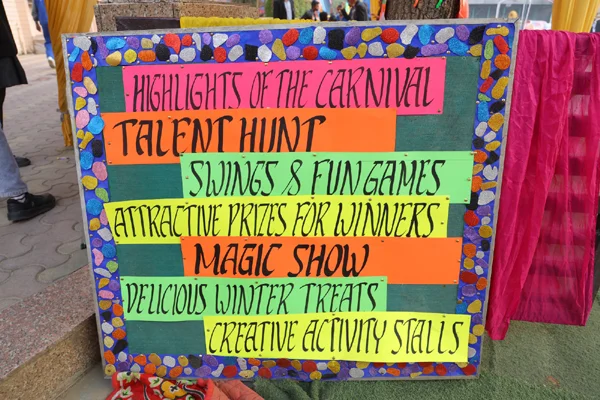 HIGHLIGHTS OF THE CARNIVAL
TALENT HUNT
SWINGS & FUN GAMES
ATTRACTIVE PRIZES FOR WINNERS
MAGIC SHOW
DELICIOUS WINTER TREATS
CREATIVE ACTIVITY STALLS